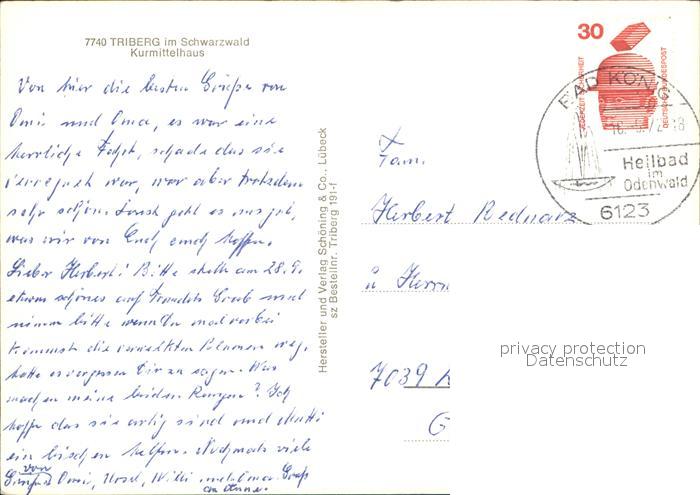 7740 TRIBERG im Schwarzwald
Kurmittelhaus
Von hier die besten Grüße von
Omi und Oma, es war eine
herrliche Fahrt, schade das sie
verregnet war, war aber trotzdem
sehr schön. Sonst geht es uns gut,
was wir von Euch auch hoffen.
Lieber Herbert! Bitte stelle am 28.9.
etwas schönes auf Grab und
nimm bitte wenn Du mal vorbei
kommst die verwelkten Blumen weg,
hatte es vergessen Dir zu sagen. Was
machen meine beiden ? Ich
hoffe das sie artig sind und Mutti
ein bischen helfen. Nochmals viele
Grüße von Omi, Willi und Oma.
Hersteller und Verlag Schöning & Co., Lübeck
sz Bestellnr. Triberg 191-f
30
JEDERZEIT SICHERHEIT
DEUTSCHE BUNDESPOST
BAD KÖNIG
Heilbad
im
Odenwald
6123
Fam.
Herbert Bednarz
u Herrn
7039
G
privacy protection
Datenschutz